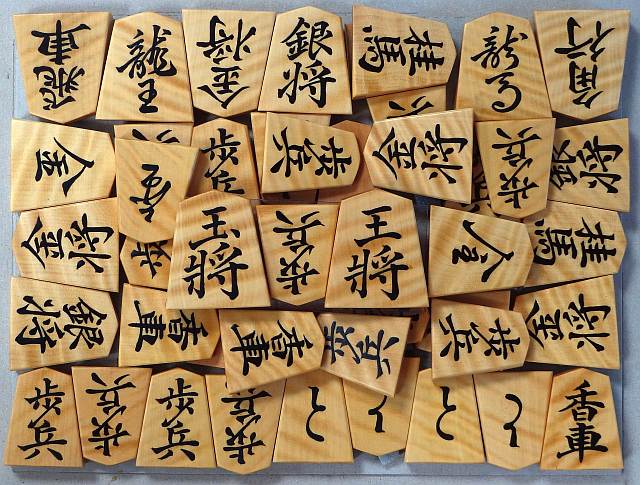 飛車
龍王
金将
銀将
桂馬
龍馬
角行
歩兵
歩兵
金将
歩兵
銀将
金将
王将
歩兵
王将
桂馬
銀将
香車
香車
歩兵
歩兵
金将
歩兵
歩兵
歩兵
歩兵
と
と
と
と
香車